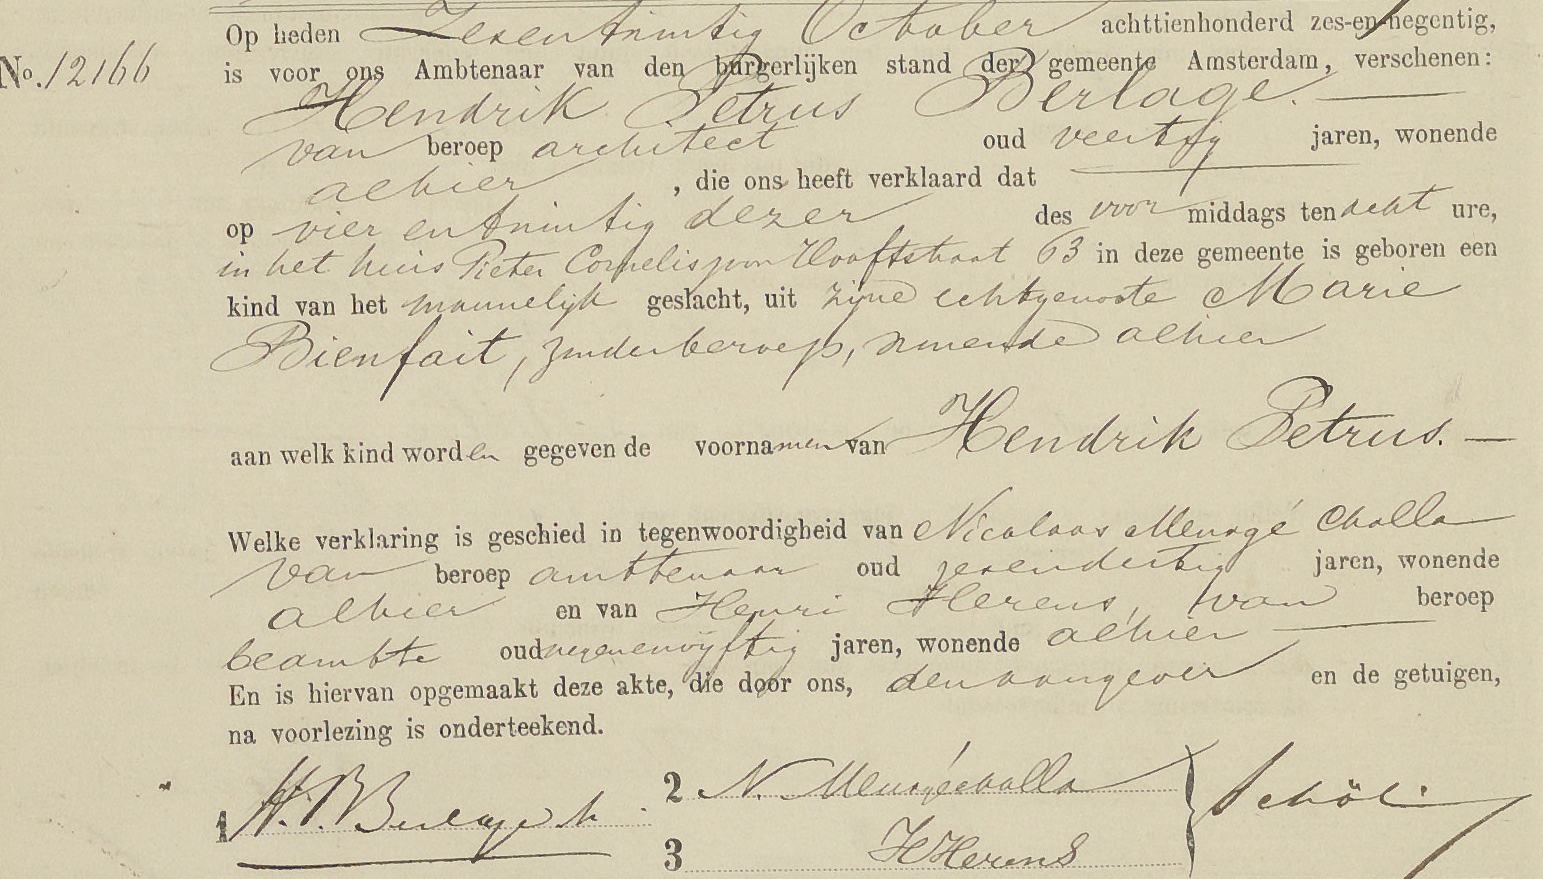 Op heden Zesentwintig October achttienhonderd zes-en-negentig,
No. 12166 is voor ons Ambtenaar van den burgerlijken stand der gemeente Amsterdam, verschenen:
Hendrik Petrus Berlage.
van beroep architect oud veertig jaren, wonende
alhier, die ons heeft verklaard dat
op vier en twintig dezer des voor middags ten acht ure,
in het huis Pieter Corneliszoon Hooftstraat 63 in deze gemeente is geboren een
kind van het mannelijk geslacht, uit zijne echtgenoote Marie
Bienfait, zonder beroep, wonende alhier
aan welk kind worden gegeven de voornamen van Hendrik Petrus.
Welke verklaring is geschied in tegenwoordigheid van Nicolaas Menagé Challa
van beroep ambtenaar oud zesendertig jaren, wonende
alhier en van Henri Herens, van beroep
beambte oud negenenvijftig jaren, wonende alhier
En is hiervan opgemaakt deze akte, die door ons, den aangever en de getuigen,
na voorlezing is onderteekend.
1 H.P. Berlage 2 N. Menagé Challa
3 HHerens